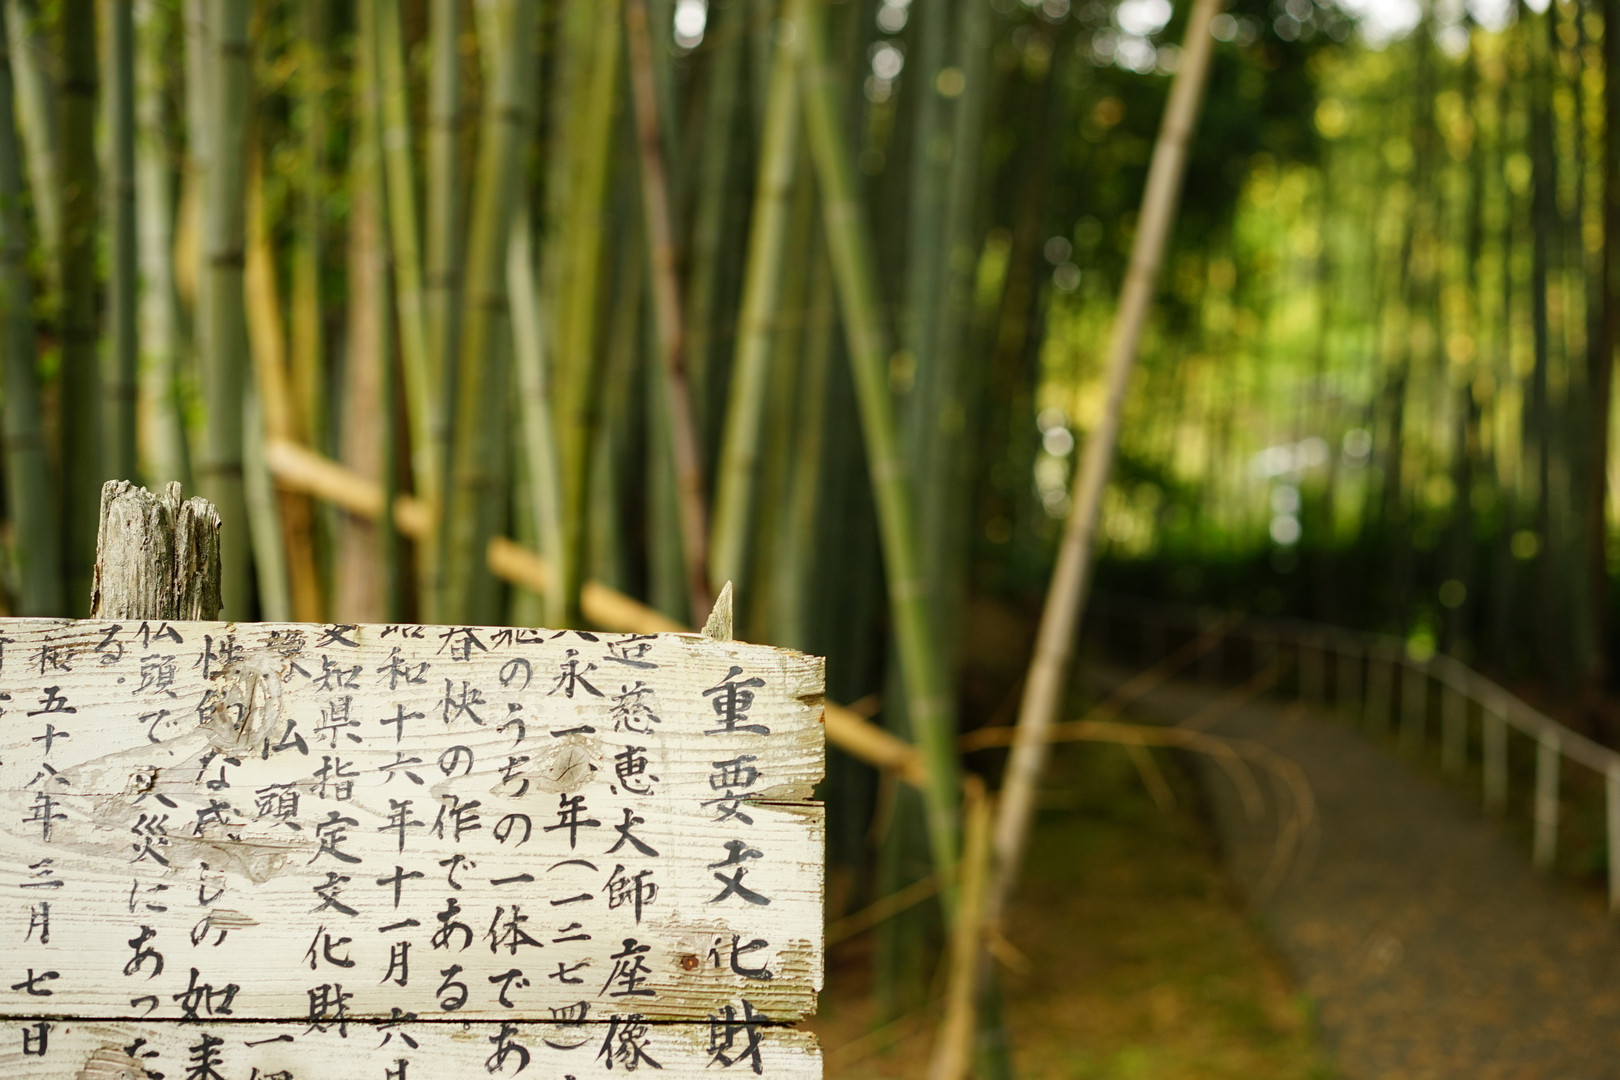 重要文化財
造慈恵大師座像
永一一年（一二七四）
のうちの一体であ
快の作である。
昭和十六年十一月六日
愛知県指定文化財
仏頭 一
性的な感じの如来
仏頭で、火災にあった
る。
和五十八年三月七日